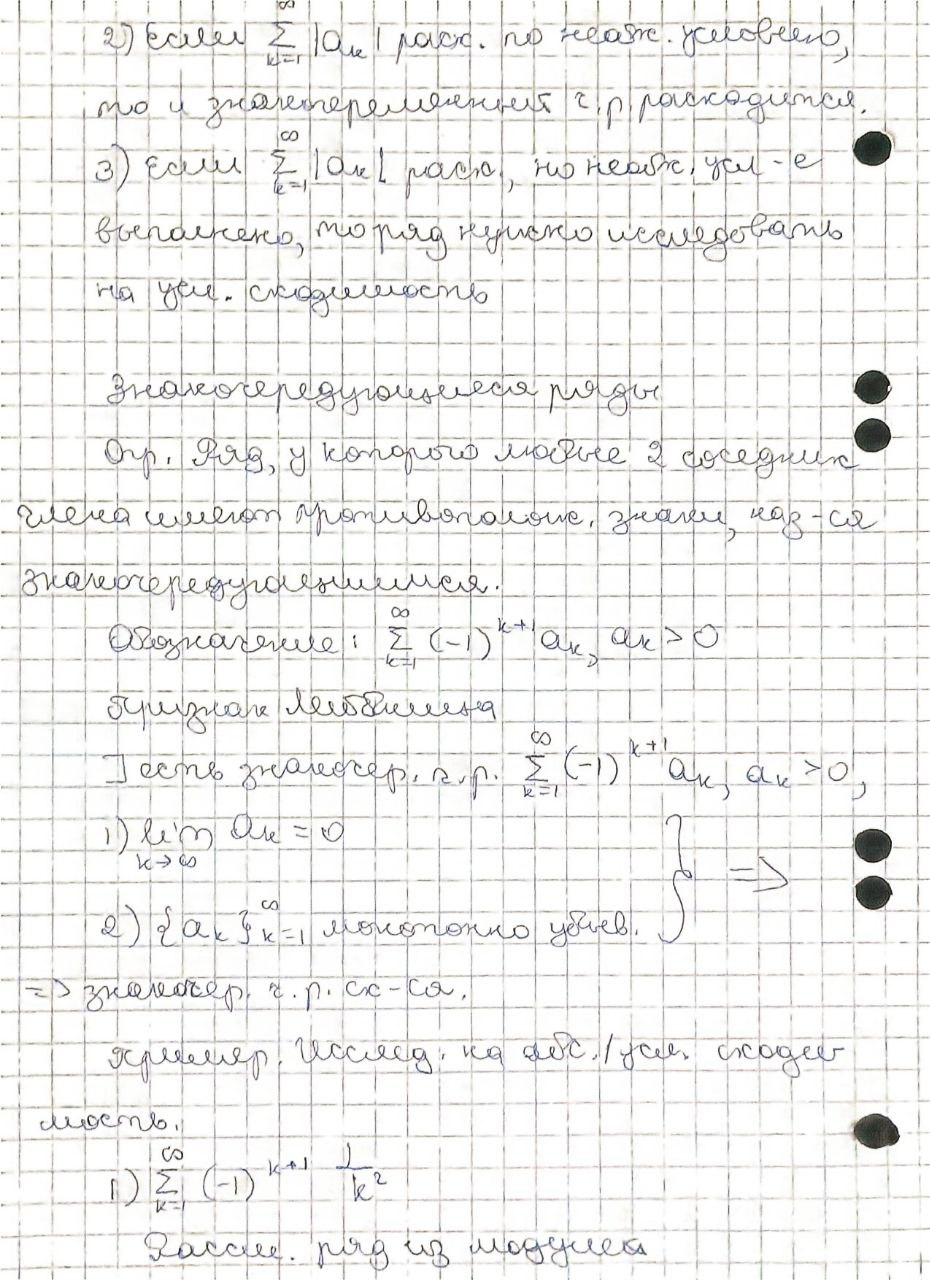 2) Если ∑_{k=1}^{∞} |a_k| расх. по необх. условию,
то и знакопеременный ч.р. расходится.
3) Если ∑_{k=1}^{∞} |a_k| расх, но необх. усл-е
выполнено, то ряд нужно исследовать
на усл. сходимость
Знакочередующиеся ряды
Опр. Ряд, у которого любые 2 соседних
члена имеют противополож. знаки, наз-ся
знакочередующимися.
Обозначение: ∑_{k=1}^{∞} (-1)^{k+1} a_k, a_k > 0
Признак Лейбница
] есть знакочер. ч.р. ∑_{k=1}^{∞} (-1)^{k+1} a_k, a_k > 0,
1) lim_{k→∞} a_k = 0
2) {a_k}_{k=1}^{∞} монотонно убыв. } =>
=> знакочер. ч.р. сх-ся.
Пример. Исслед. на абс./усл. сходи
мость.
1) ∑_{k=1}^{∞} (-1)^{k+1} 1/k²
Рассм. ряд из модулей